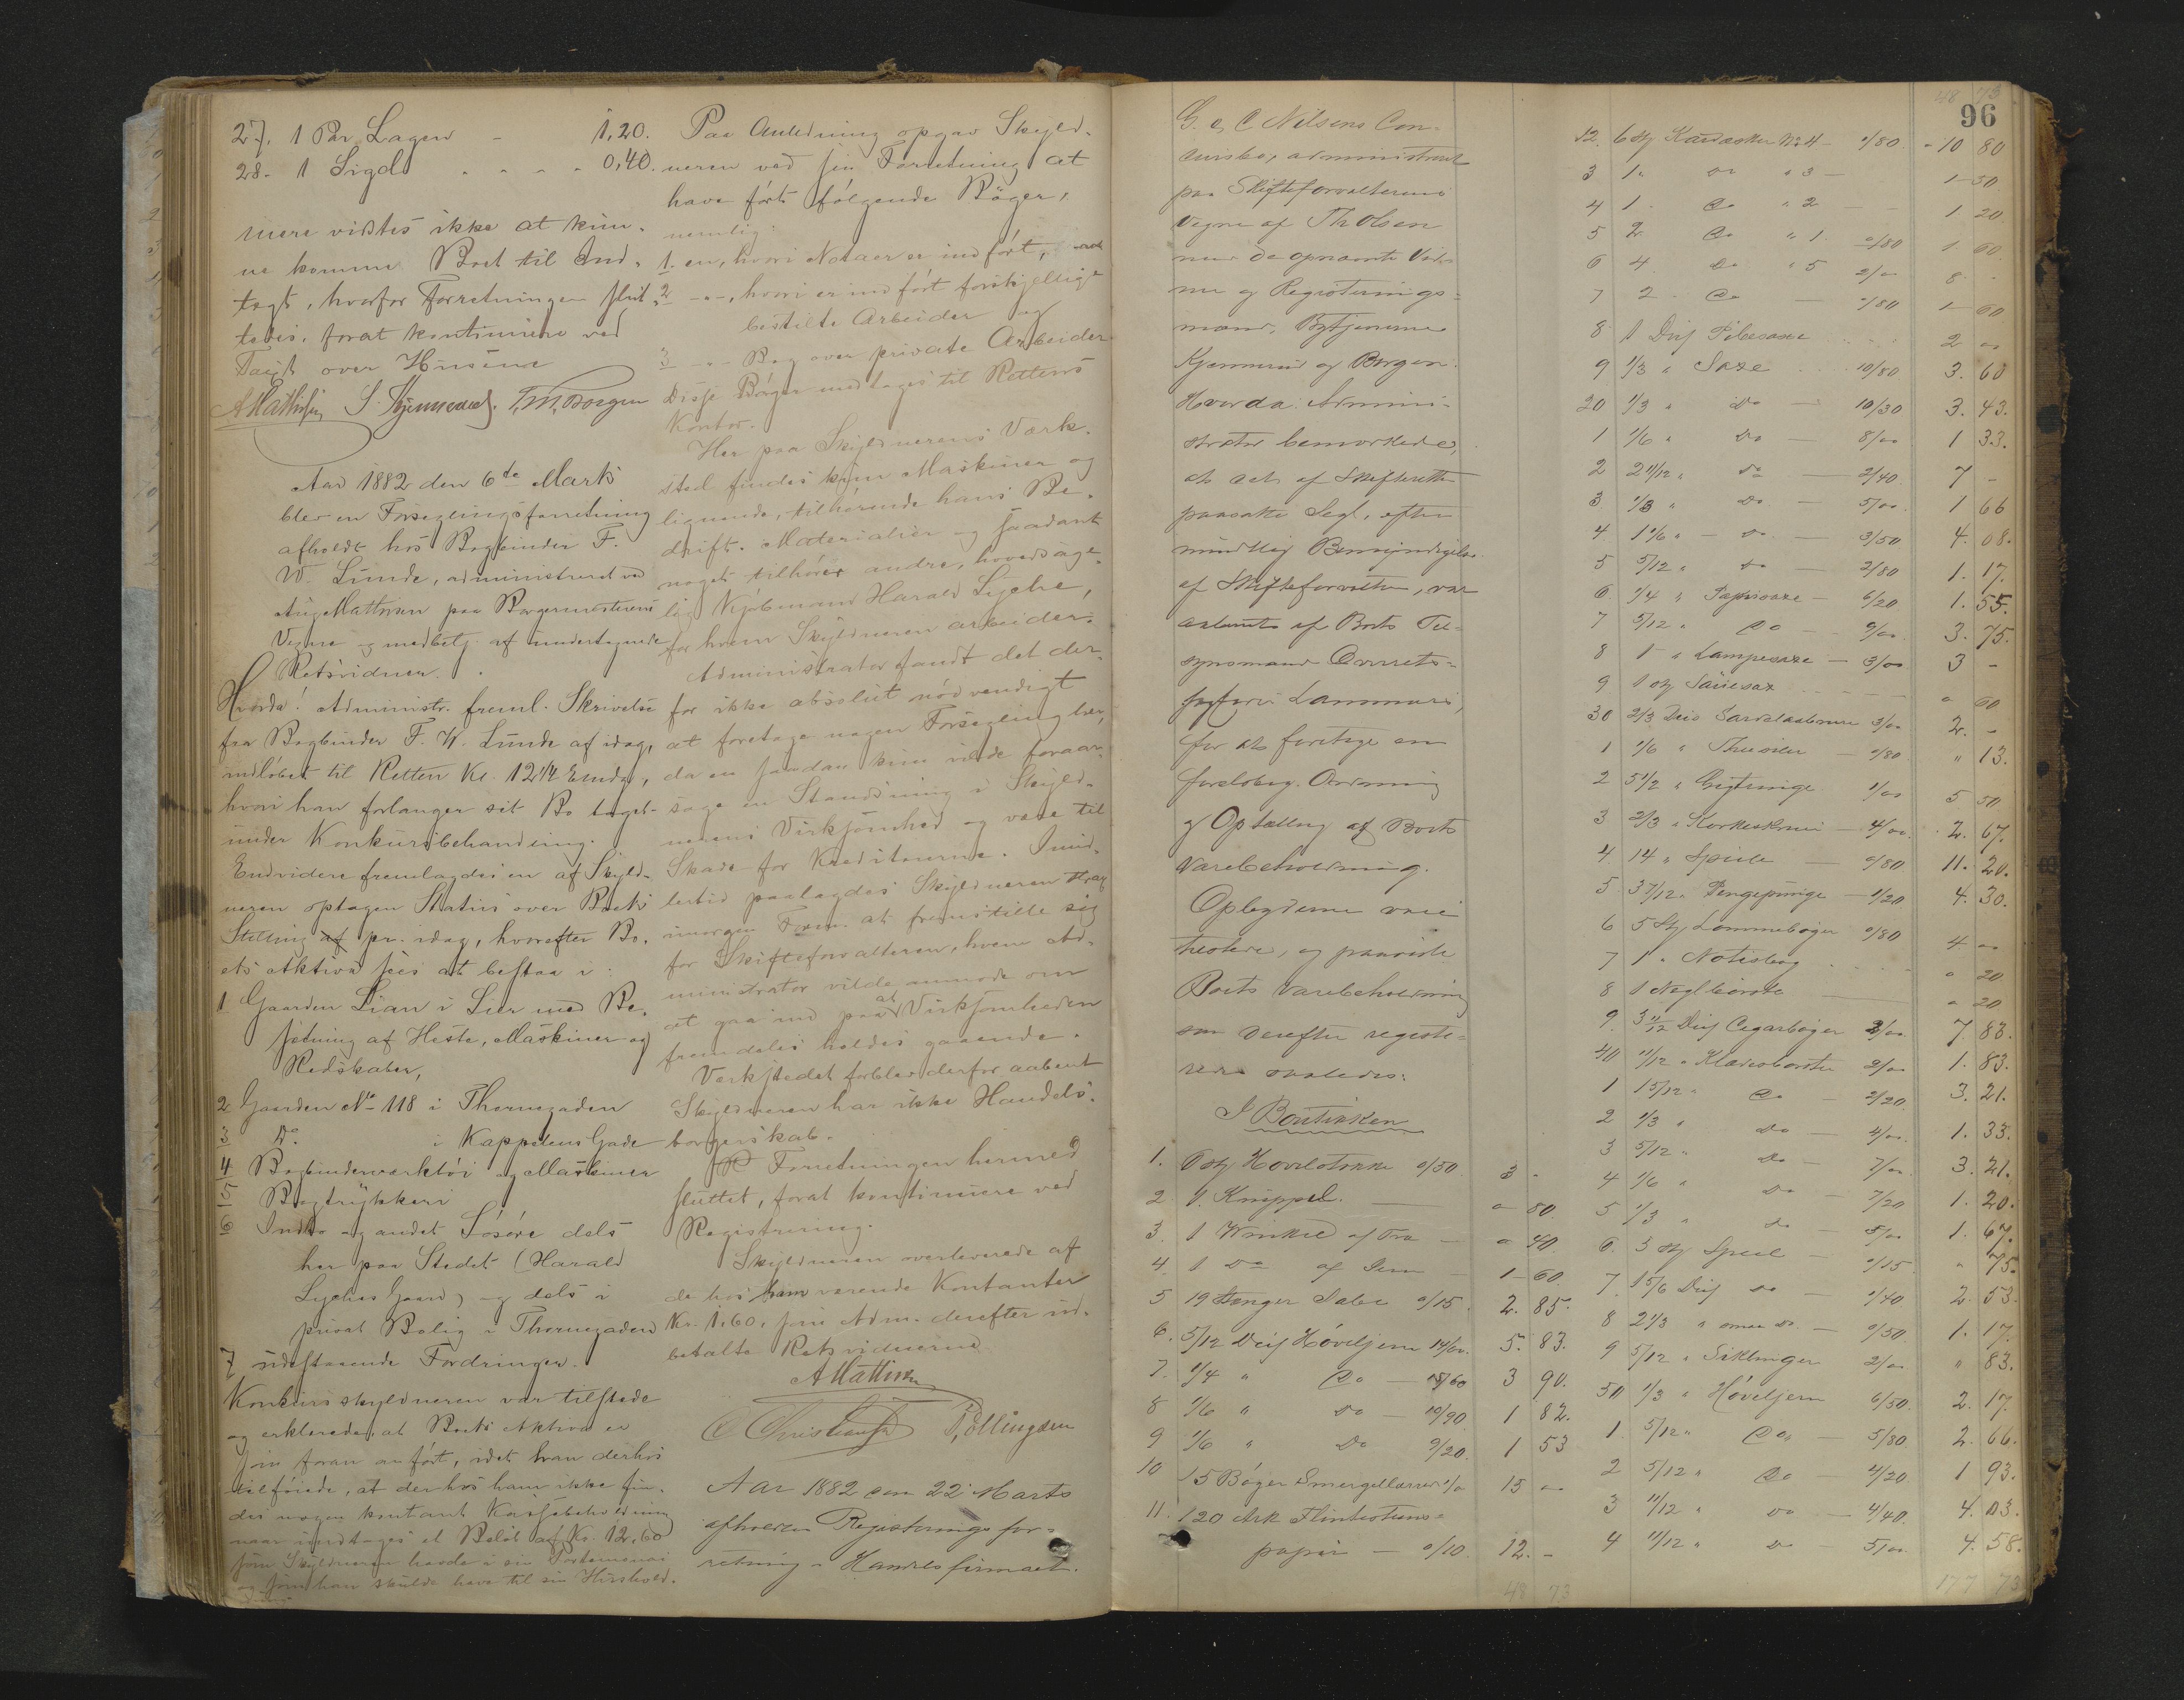 27. 1 Par Lagen - 1,20.
28. 1 Sigd - - - - 0,40.
mere vidstes ikke at kun-
ne komme Boet til Ind-
tægt, hvorfor Forretningen slut-
tedes, forat kontinuere ved
Taxt over Husene
AMathisen S. Kjennerud. T.M. Borgen
Aar 1882 den 6te Marts
blev en Forseglingsforretning
afholdt hos Bogbinder F.
W. Lunde, administreret ved
Aug. Mathisen paa Borgermesterens
Vegne og medbetj. af undertegnede
Retsvidner.
Hvorda! Administr. freml. Skrivelse
fra Bogbinder F. W. Lunde af idag,
indløbet til Retten Kl. 12 1/4 Emdg,
hvori han forlanger sit Bo taget
under Konkursbehandling.
Endvidere fremlagdes en af Skyld-
neren optagen Status over Boets
Stilling af pr. idag, hvorefter Bo-
ets Aktiva sees at bestaa i:
1 Gaarden Lian i Lier med Be-
sætning af Heste, Maskiner og
Redskaber,
2 Gaarden No 118 i Thornegaden
3 Do i Kappelens Gade
4 Bogbinderværktøi og Maskiner
5 Bogtrykkeri
6 Indbo og andet Løsøre dels
her paa Stedet (Harald
Lyches Gaard) og dels i
privat Bolig i Thornegaden
7 udestaaende Fordringer.
Konkursskyldneren var tilstede
og erklærede, at Boets Aktiva er
som foran anført, idet han derhos
tilføiede, at der hos ham ikke fin-
des nogen kontant Kassebeholdning
naar undtages et Beløb af Kr. 12,60
som Skyldneren havde i sin Portemonai
og som han skulde have til sin Hushold-
Paa Anledning opgav Skyld-
neren ved sin Forretning at
have ført følgende Bøger,
nemlig:
1. en, hvori Notaer er indført,
2 -"-, hvori er indført forskjellige
bestilte Arbeider og
3 -"- Bog over private Arbeider
Disse Bøger medtages til Rettens
Kontor.
Her paa Skyldnerens Værk-
sted findes kun Maskiner og
lignende, tilhørende hans Be-
drift. Materialier og saadant
noget tilhører andre, hovedsage-
lig Kjøbmand Harald Lyche,
for hvem Skyldneren arbeider.
Administrator fandt det der-
for ikke absolut nødvendigt
at foretage nogen Forsegling her,
da en saadan kun vilde foraar-
sage en Standsning i Skyld-
nerens Virksomhed og være til
Skade for Kreditorerne. Imid-
lertid paalagdes Skyldneren strax
imorgen Form. at fremstille sig
for Skifteforvalteren, hvem Ad-
ministrator vilde anmode om
at gaa ind paa at Virksomheden
fremdeles holdes gaaende.
Værkstedet forblev derfor aabent
Skyldneren har ikke Handels-
borgerskab.
Forretningen hermed
sluttet, forat kontinuere ved
Registrering.
Skyldneren overleverede af
de hos ham værende Kontanter
Kr. 1,60, som Adm. derefter ud-
betalte Retsvidnerne.
AMathisen
C Christiansen P, Ellingsen
Aar 1882 den 22 Marts
afholdtes Registerings for-
retning i Handelsfirmaet
G. & C Nilsens Con-
cursbo, administreret
paa Skifteforvalterens
Vegne af Th Olsen
med de opnævnte Vid-
ner og Registerings-
mænd, Bytjenerne
Kjennerud og Borgen.
Hvorda: Admini-
strator bemærkede,
at det af Skifteretten
paasatte Segl, efter
mundtlig Bemyndigelse
af Skifteforvalteren, var
aabnet af Boets Til-
synsmand Overrets-
sagfører Lammers,
for at foretage en
foreløbig Ordning
og Optælling af Boets
Varebeholdning.
Opbyderne vare
tilstede, og paaviste
Boets Varebeholdning
som derefter registe-
redes saaledes:
I Boutikken
1. 6 St Høvlstokke 0/50 3 -
2 1 Knippel. " 80.
3. 1 Winkel af Træ - " 40.
4 1 Do af Jern - 1 - 60.
5 19 Stenger Dabe 0/15. 2. 85.
6. 5/12 Dus Høveljern 14/00. 5. 83.
7. 1/4 " Do - 15/60 3 90.
8 1/6 " Do - 10/90 1 82.
9 1/6 " Do 9/20. 1 53
10 15 Bøger Smergellærred 1/00 15 "
11. 120 Ark Flintstens-
papir - 0/10 12. -
48 73
48 73
96
12. 6 St Kardæsker No 4 - 1/80. 10 80
3 1 " Do " 3 - 1 - 50
4 1 Do " 2 - 1 20
5 2 Do " 1. 0/80 1. 60
6 4 Do " 5 2/00 8 -
7 2 Do - 0/80 1 - 60
8 1 Dus Pibesaxe 2 "
9 1/3 " Saxe 10/80 3. 60
20 1/3 " Do - 10/30 3. 43.
1 1/6 " Do - 8/00 1 33.
2 2 11/12 " Do - 2/40. 7 -
3 1/3 " Do - 5/00. 1 66
4. 1 1/6 " - Do - 3/50 4. 08.
5 5/12 " Do - 2/80 1. 17.
6 1/4 " Papirsaxe - 6/20 1. 55.
7 5/12 " Do - 9/00. 3. 75.
8 1 " Lampesaxe - 3/00 3 -
9 1 St Sauesax " 60
30 2/3 Dus 3/00 2. -
1 1/6 " Theesier - 0/80. " 13.
2 5 1/2 " 1/00 5 50
3 2/3 " Korkeskruer - 4/00. 2. 67.
4. 14 " Speile - 0/80 11. 20.
5 3 7/12 " Pengepunge - 1/20 4. 30.
6 5 St Lommebøger 0/80 4 "
7 1 " Notisbog " 20
8 1 Neglbørste " 20
9. 3 11/12 Dus Cigarbøger 2/00. 7. 83.
40 11/12 " Klædesbørster 2/00 1. 83.
1 1 5/12 " Do - 2/20. 3. 21.
2 1/3 " Do - 4/00. 1. 33.
3 5/12 " Do - 7/00 3. 21.
4 1/6 " Do - 7/20 1. 20.
5 1/3 " Do - 5/00 1. 67.
6. 5 St Speil - 0/15 " 75.
7. 1 5/6 Dus Do - 1/40 2. 53.
8 2 1/3 " smaa Do. - 0/50. 1. 17.
9 5/12 " Siklinger 2/00 " 83.
50 1/3 " Høveljern 6/50. 2. 17.
1 5/12 " Do " 5/80. 2. 66.
2 5/12 " Do 4/20. 1 93.
3 11/12 " Do - 4/40. 4. 03.
4 11/12 " Do - 5/00. 4. 58.
177 73